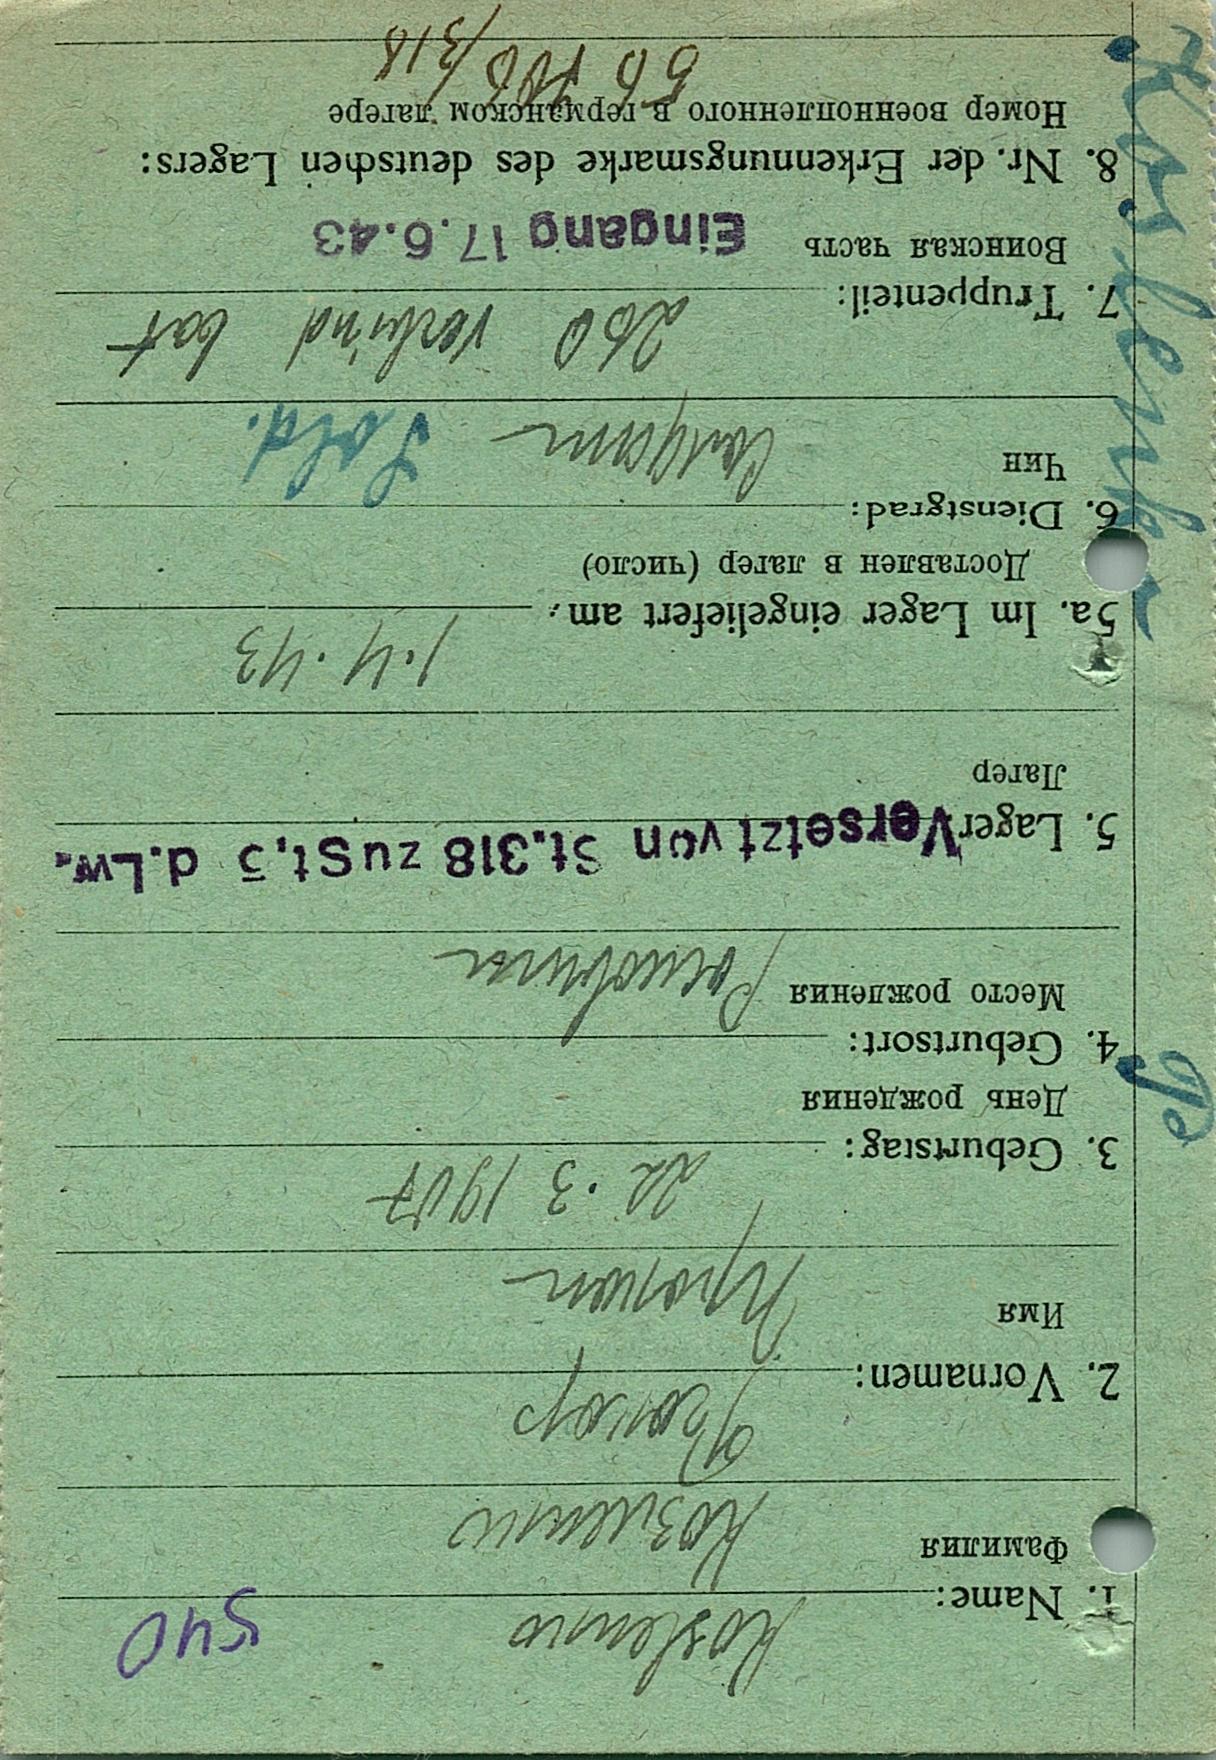 540
1. Name: Koslenko
Фамилия Козленко
2. Vornamen:
Имя
3. Geburtstag: 22.3 1907
День рождения
4. Geburtsort:
Место рождения
5. Lager Versetzt von St.318 zu St.3 d.Lw.
Лагер
5a. Im Lager eingeliefert am: 1.4.43
Доставлен в лагер (число)
6. Dienstgrad: Sold.
Чин
7. Truppenteil: 260 bat
Воинская часть Eingang 17.6.43
8. Nr. der Erkennungsmarke des deutschen Lagers:
Номер военнопленного в германском лагере
/318
Koslenko